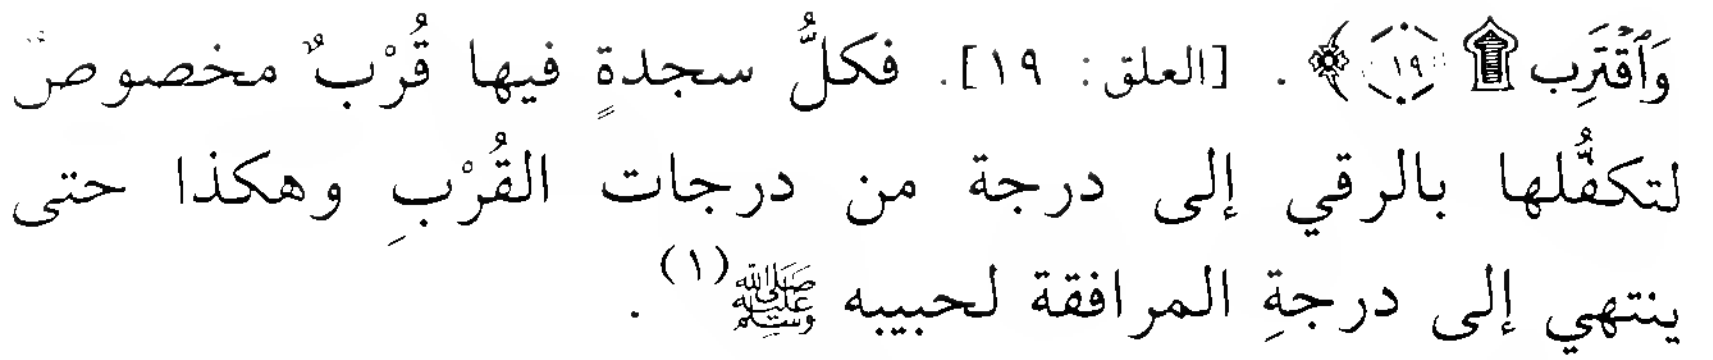 وَٱقۡتَرِب ۩ ۝١٩ ﴾ . [العلق: ١٩]. فكلُّ سجدةٍ فيها قُرْبٌ مخصوصٌ
لتكفُّلها بالرقي إلى درجة من درجات القُرْبِ وهكذا حتى
ينتهي إلى درجةِ المرافقة لحبيبه ﷺ(١) .